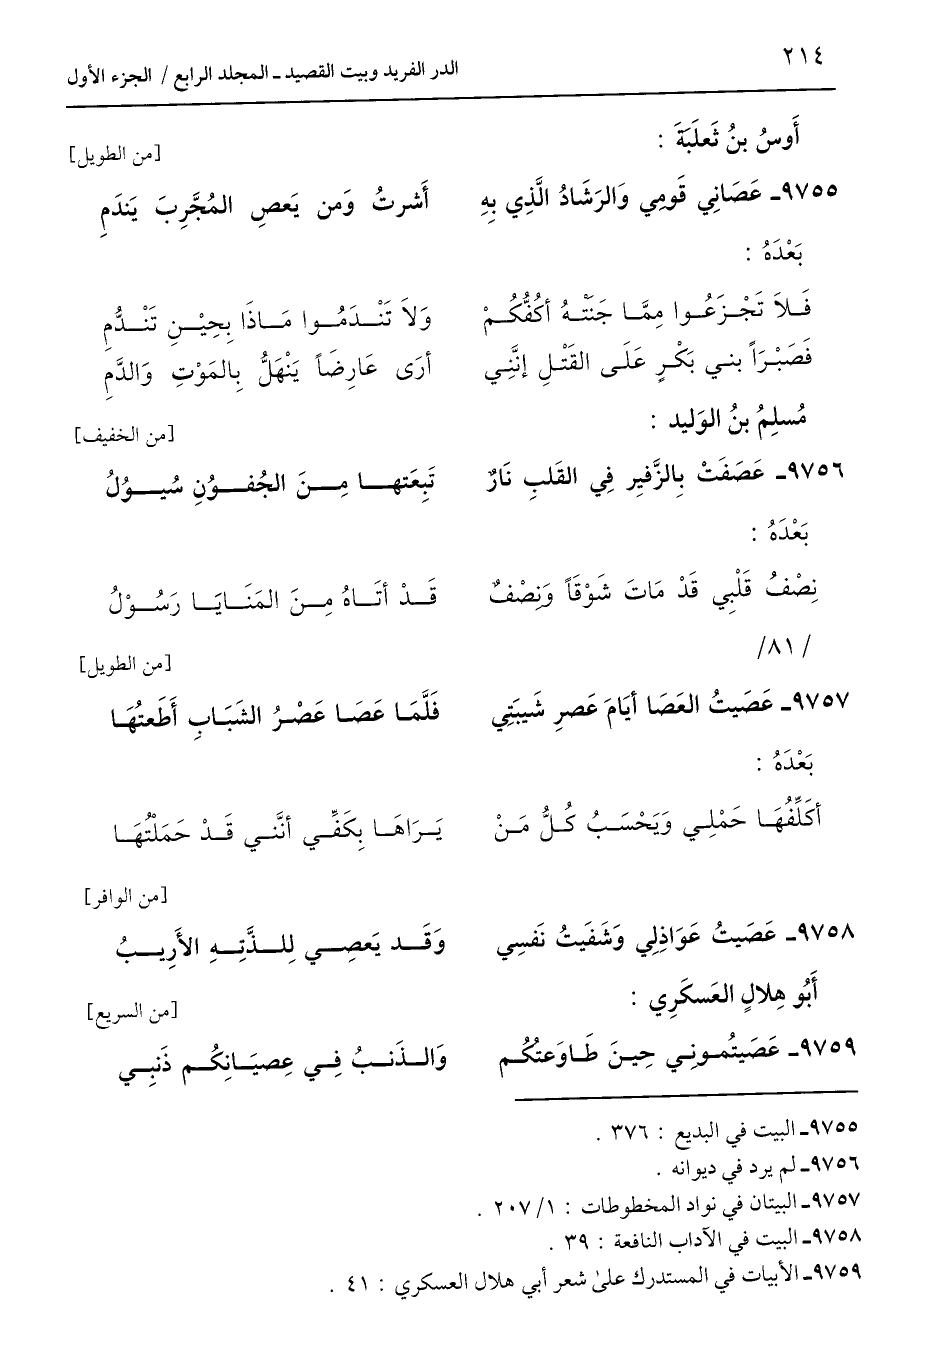 ٢١٤
الدر الفريد وبيت القصيد ـ المجلد الرابع / الجزء الأول
أَوسُ بنُ ثَعلَبَةَ :
[من الطويل]
٩٧٥٥ـ عَصَانِي قَومِي وَالرَشَادُ الَّذِي بِهِ أَشرتُ وَمَن يَعصِ المُجَّرِبَ يَندَمِ
بَعْدَهُ :
فَلاَ تَجْزَعُوا مِمَّا جَنَتْهُ أكُفُّكُمْ وَلاَ تَنْدَمُوا مَاذَا بِحِيْنِ تَنْدُّمِ
فَصَبْرَاً بني بَكْرٍ عَلَى القَتْلِ إنَّنِي أرَى عَارِضَاً يَنْهَلُّ بِالمَوْتِ وَالدَّمِ
مُسلِمُ بنُ الوَليد :
[من الخفيف]
٩٧٥٦ـ عَصَفَتْ بِالزَّفيِر فِي القَلبِ نَارٌ تَبِعَتها مِنَ الجُفوُنِ سُيوُلُ
بَعْدَهُ :
نِصْفُ قَلْبِي قَدْ مَاتَ شَوْقَاً وَنِصْفٌ قَدْ أتَاهُ مِنَ المَنَايَا رَسُوْلُ
/ ٨١/
[من الطويل]
٩٧٥٧ـ عَصَيتُ العَصَا أيَامَ عَصرِ شَيبَتِي فَلَّمَا عَصَا عَصْرُ الشَبَابِ أَطَعتُهَا
بَعْدَهُ :
أكَلِّفُهَا حَمْلِي وَيَحْسَبُ كُلُّ مَنْ يَرَاهَا بِكَفِّي أنَّني قَدْ حَمَلْتُهَا
[من الوافر]
٩٧٥٨ـ عَصَيتُ عَوَاذِلِي وَشَفَيتُ نَفسِي وَقَد يَعصِي لِلذَّتِهِ الأَرِيبُ
أَبُو هِلالٍ العَسكَرِي :
[من السريع]
٩٧٥٩ـ عَصَيتُمونِي حِينَ طَاوَعتُكُم وَالذَنبُ فِي عِصيَانِكُم ذَنبِي
٩٧٥٥ـ البيت في البديع : ٣٧٦ .
٩٧٥٦ـ لم يرد في ديوانه .
٩٧٥٧ـ البيتان في نواد المخطوطات : ١/ ٢٠٧ .
٩٧٥٨ـ البيت في الآداب النافعة : ٣٩ .
٩٧٥٩ـ الأبيات في المستدرك على شعر أبي هلال العسكري : ٤١ .